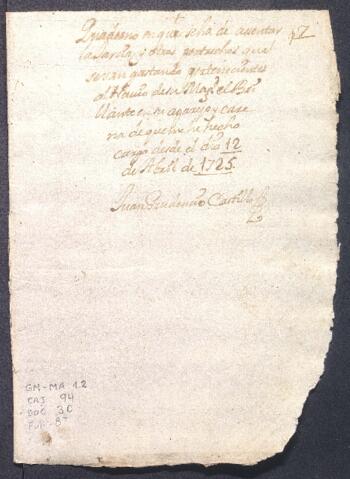 Quaderno en que se ha de asentar
la Jarcia, y otros pertrechos que
se van gastando pertenecientes
al Navio de su Mag.d el Bri
llante en su aparejo y care
na de que me he hecho
cargo desde el dia 12
de Abril de 1725.
Juan Prudencio Castillo
GM-MA 12
CAJ 94
DOC 30